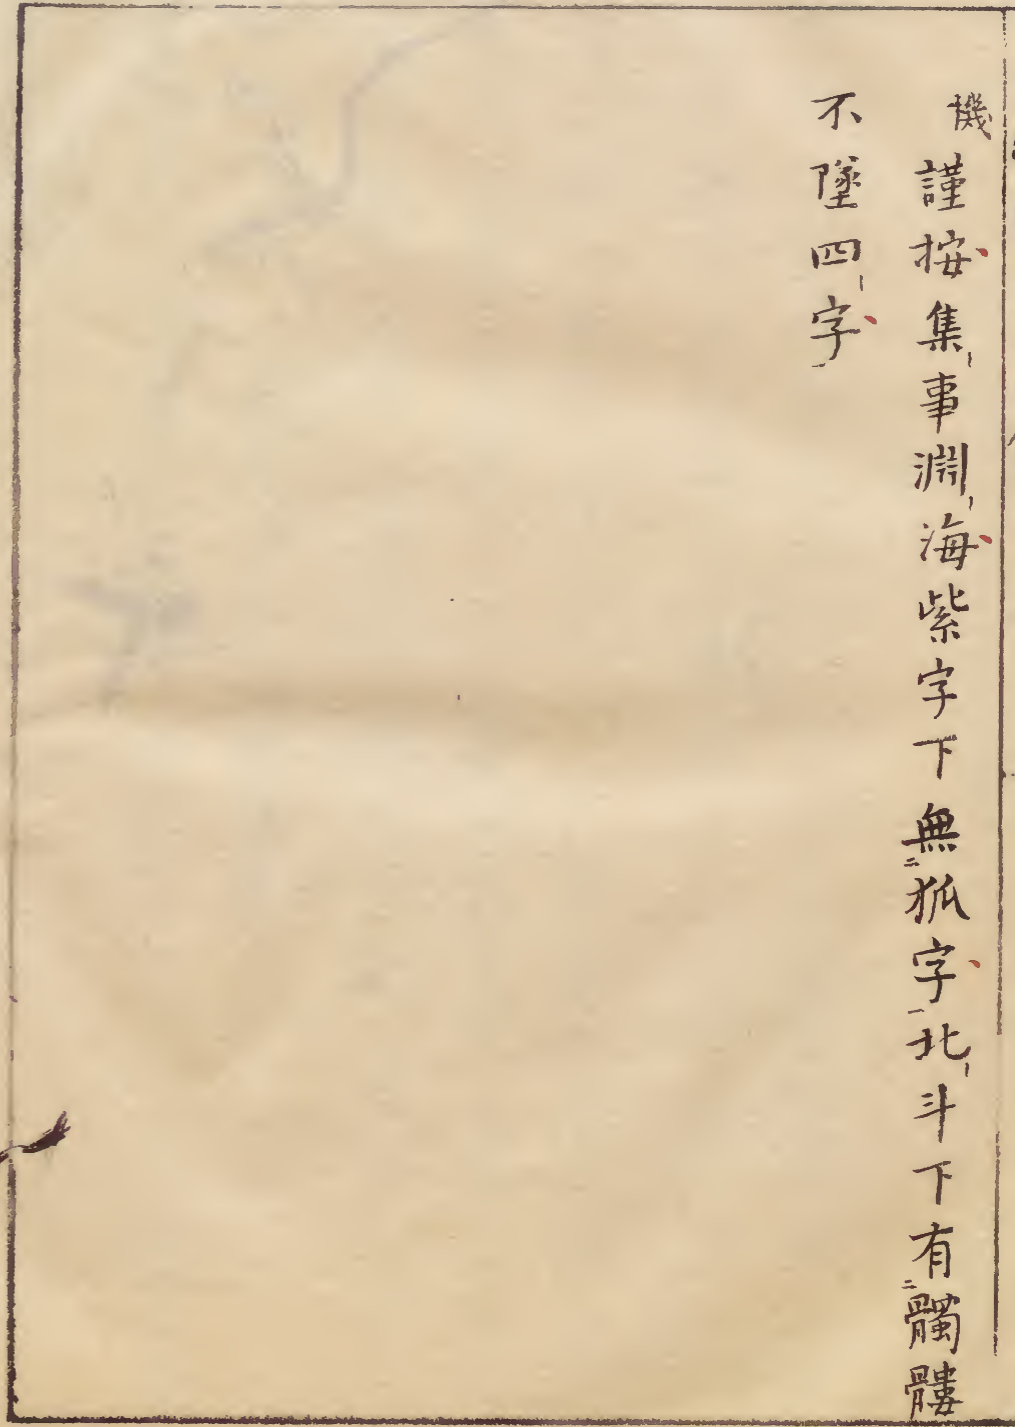 機謹按集事淵海紫字下無二狐字一北斗下有二髑髏
不墜四字一